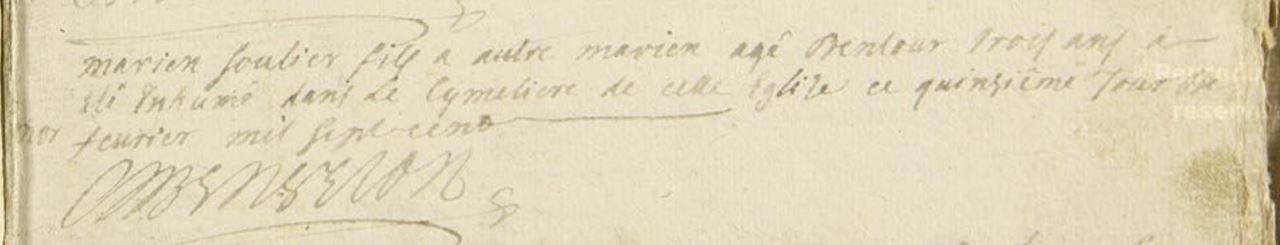 marien soulier fils a autre marien agé denlour trois ans a
été Inhumé dans Le Cymetiere de cette Eglize ce quinziéme Jour de
feurier mil sept cens